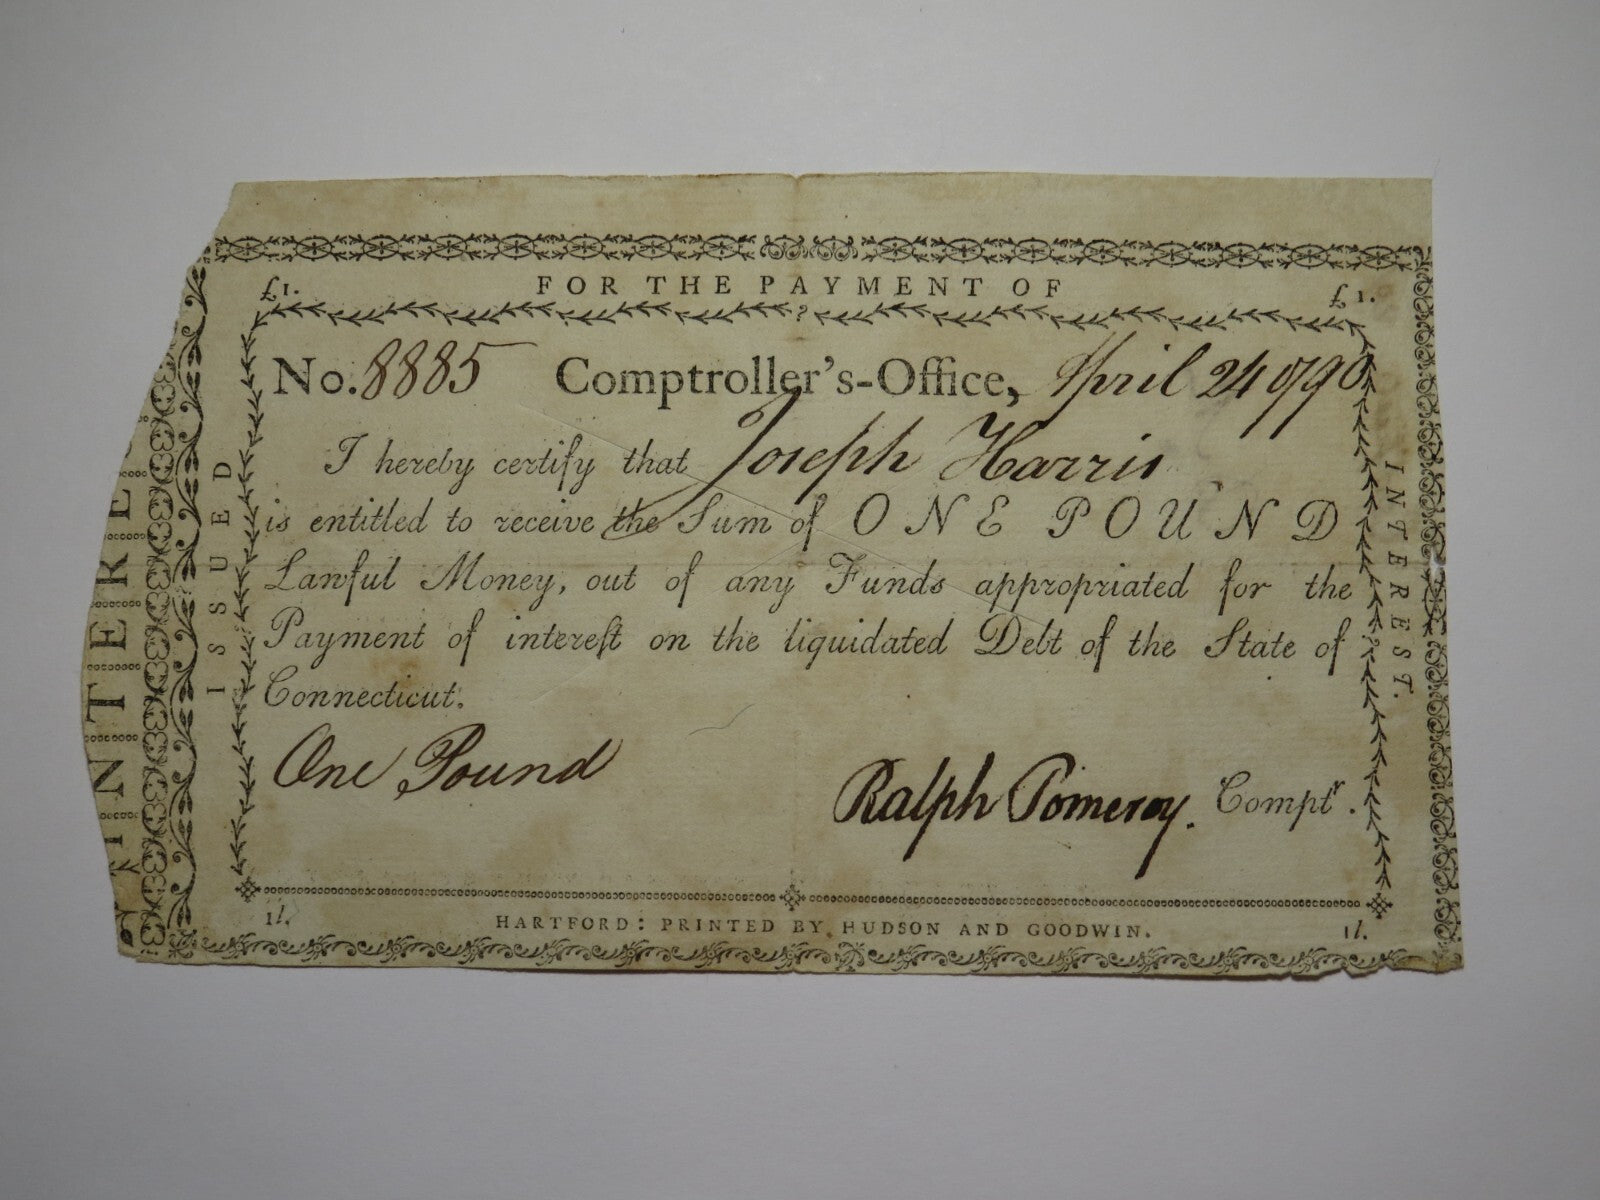 FOR THE PAYMENT OF
£1. £1.
No. 8885 Comptroller's-Office, April 24 1790
I hereby certify that Joseph Harris
is entitled to receive the Sum of ONE POUND
Lawful Money, out of any Funds appropriated for the
Payment of intereſt on the liquidated Debt of the State of
Connecticut.
One Pound
Ralph Pomeroy. Comptr.
1l. 1l.
HARTFORD: PRINTED BY HUDSON AND GOODWIN.
ISSUED
INTEREST.
INTERE